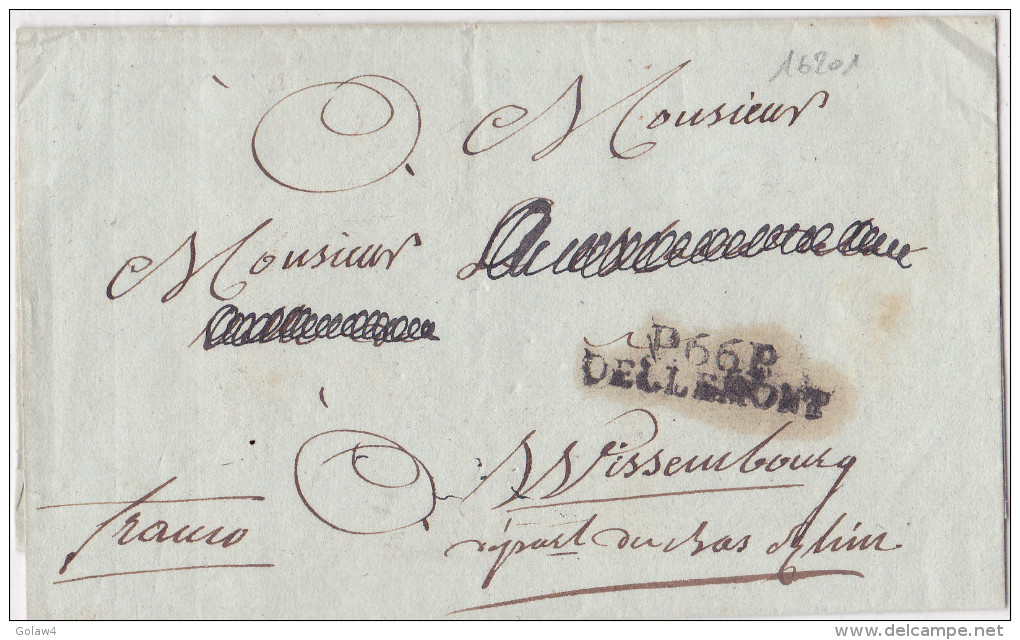 16201
À Monsieur
Monsieur
P66P
DELLEMONT
À Wissembourg
franco
départ du bas Rhin
Golaw4
www.delcampe.net